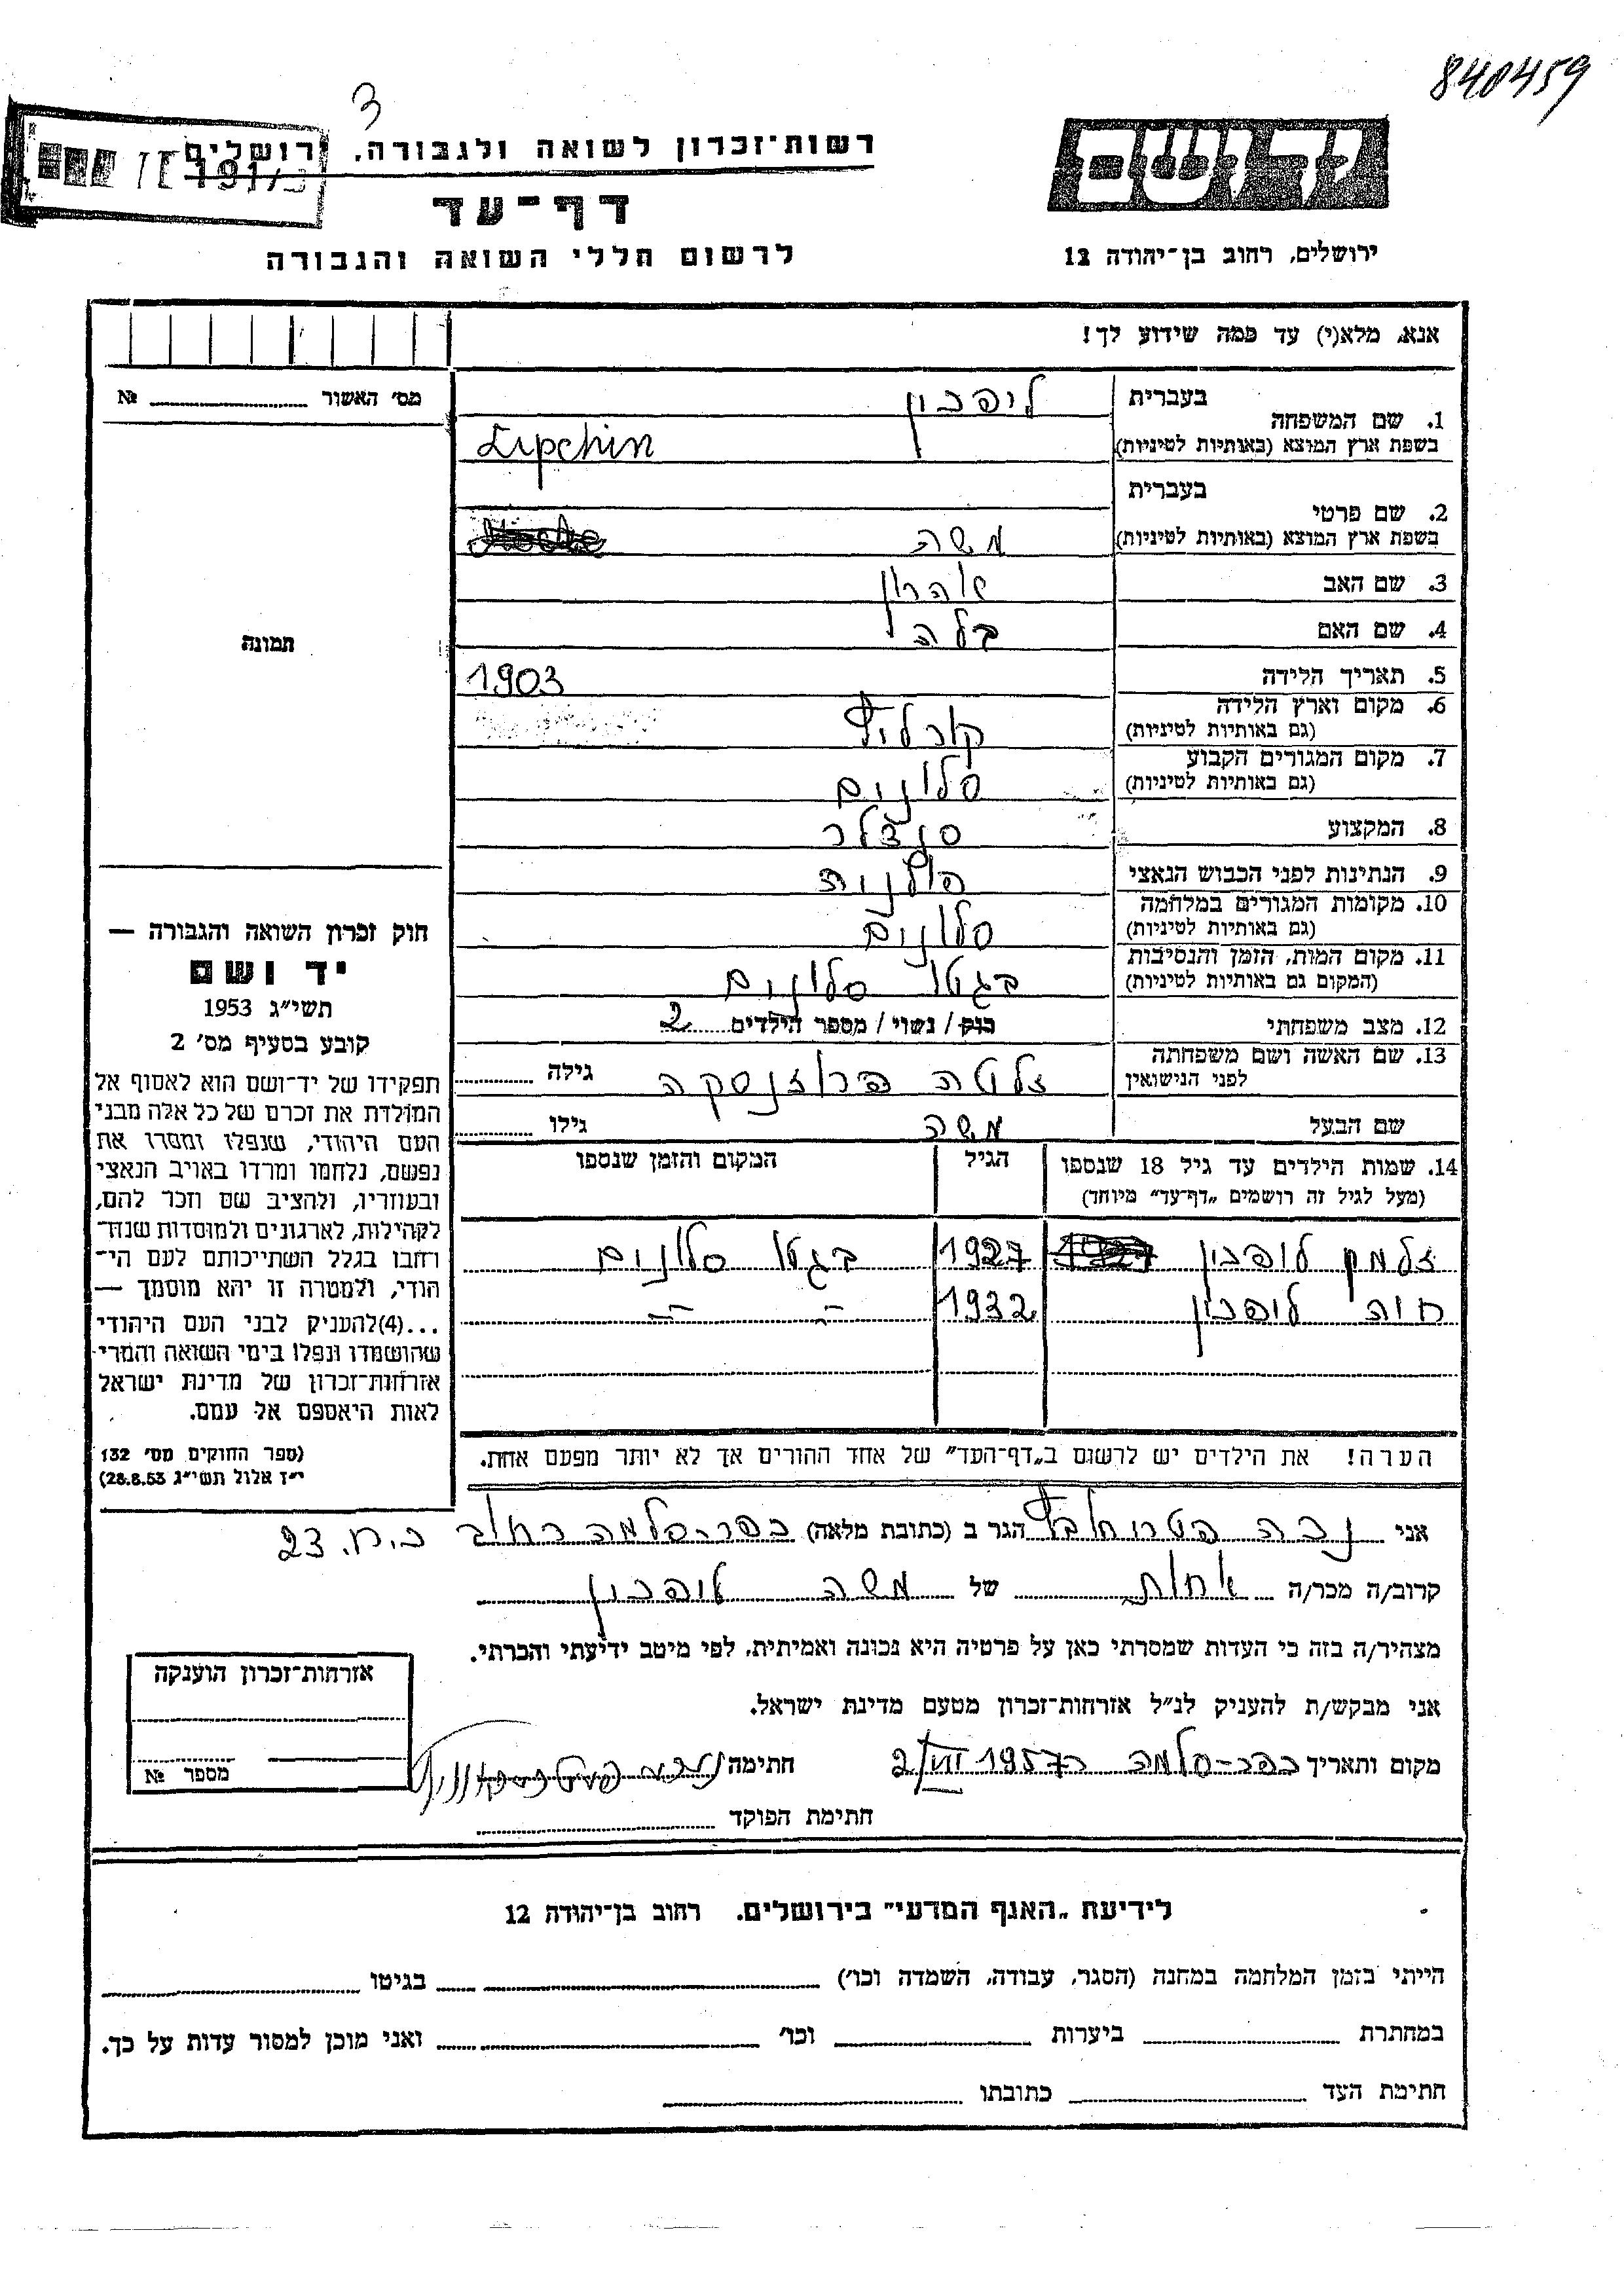 840459
3
רשות־זכרון לשואה ולגבורה. ירושלים
יד ושם
דף־עד
לרשום חללי השואה והגבורה
ירושלים, רחוב בן־יהודה 12
אנא, מלא(י) עד כמה שידוע לך!
מס׳ האשור № 
1. שם המשפחה
בעברית ליפכין
בשפת ארץ המוצא (באותיות לטיניות) Lipchin
2. שם פרטי
בעברית
בשפת ארץ המוצא (באותיות לטיניות) משה
3. שם האב אהרון
4. שם האם בלה
תמונה
5. תאריך הלידה 1903
6. מקום וארץ הלידה
(גם באותיות לטיניות)
7. מקום המגורים הקבוע סלונים
(גם באותיות לטיניות)
8. המקצוע סנדלר
9. הנתינות לפני הכבוש הנאצי פולנית
10. מקומות המגורים במלחמה סלונים
(גם באותיות לטיניות)
11. מקום המות, הזמן והנסיבות בגטו סלונים
(המקום גם באותיות לטיניות)
12. מצב משפחתי רוק / נשוי / מספר הילדים 2
13. שם האשה ושם משפחתה זלטה גילה
לפני הנישואין
שם הבעל משה גילו
14. שמות הילדים עד גיל 18 שנספו הגיל המקום והזמן שנספו
(מעל לגיל זה רושמים „דף־עד״ מיוחד)
זלמן ליפכין 1927 בגטו סלונים
חוה ליפכין 1932 -״- -״-
הערה! את הילדים יש לרשום ב„דף־העד״ של אחד ההורים אך לא יותר מפעם אחת.
חוק זכרון השואה והגבורה —
יד ושם
תשי״ג 1953
קובע בסעיף מס׳ 2
תפקידו של יד־ושם הוא לאסוף אל
המולדת את זכרם של כל אלה מבני
העם היהודי, שנפלו ומסרו את
נפשם, נלחמו ומרדו באויב הנאצי
ובעוזריו, ולהציב שם וזכר להם,
לקהילות, לארגונים ולמוסדות שנח־
רבו בגלל השתייכותם לעם הי־
הודי, ולמטרה זו יהא מוסמך —
...(4)להעניק לבני העם היהודי
שהושמדו ונפלו בימי השואה והמרי
אזרחות־זכרון של מדינת ישראל
לאות היאספם אל עמם.
(ספר החוקים מס׳ 132
י״ז אלול תשי״ג 28.8.53)
אני הגר ב (כתובת מלאה) כפר-סלמה רחוב כ.ח. 23
קרוב/ה מכר/ה אחות של משה ליפכין
מצהיר/ה בזה כי העדות שמסרתי כאן על פרטיה היא נכונה ואמיתית, לפי מיטב ידיעתי והכרתי.
אני מבקש/ת להעניק לנ״ל אזרחות־זכרון מטעם מדינת ישראל.
מקום ותאריך כפר-סלמה 2/VII 1957 חתימה
חתימת הפוקד
אזרחות־זכרון הוענקה
מספר №
לידיעת „האגף המדעי״ בירושלים. רחוב בן־יהודה 12
הייתי בזמן המלחמה במחנה (הסגר, עבודה, השמדה וכו׳) בגיטו
במחתרת ביערות וכו׳ ואני מוכן למסור עדות על כך.
חתימת העד כתובתו